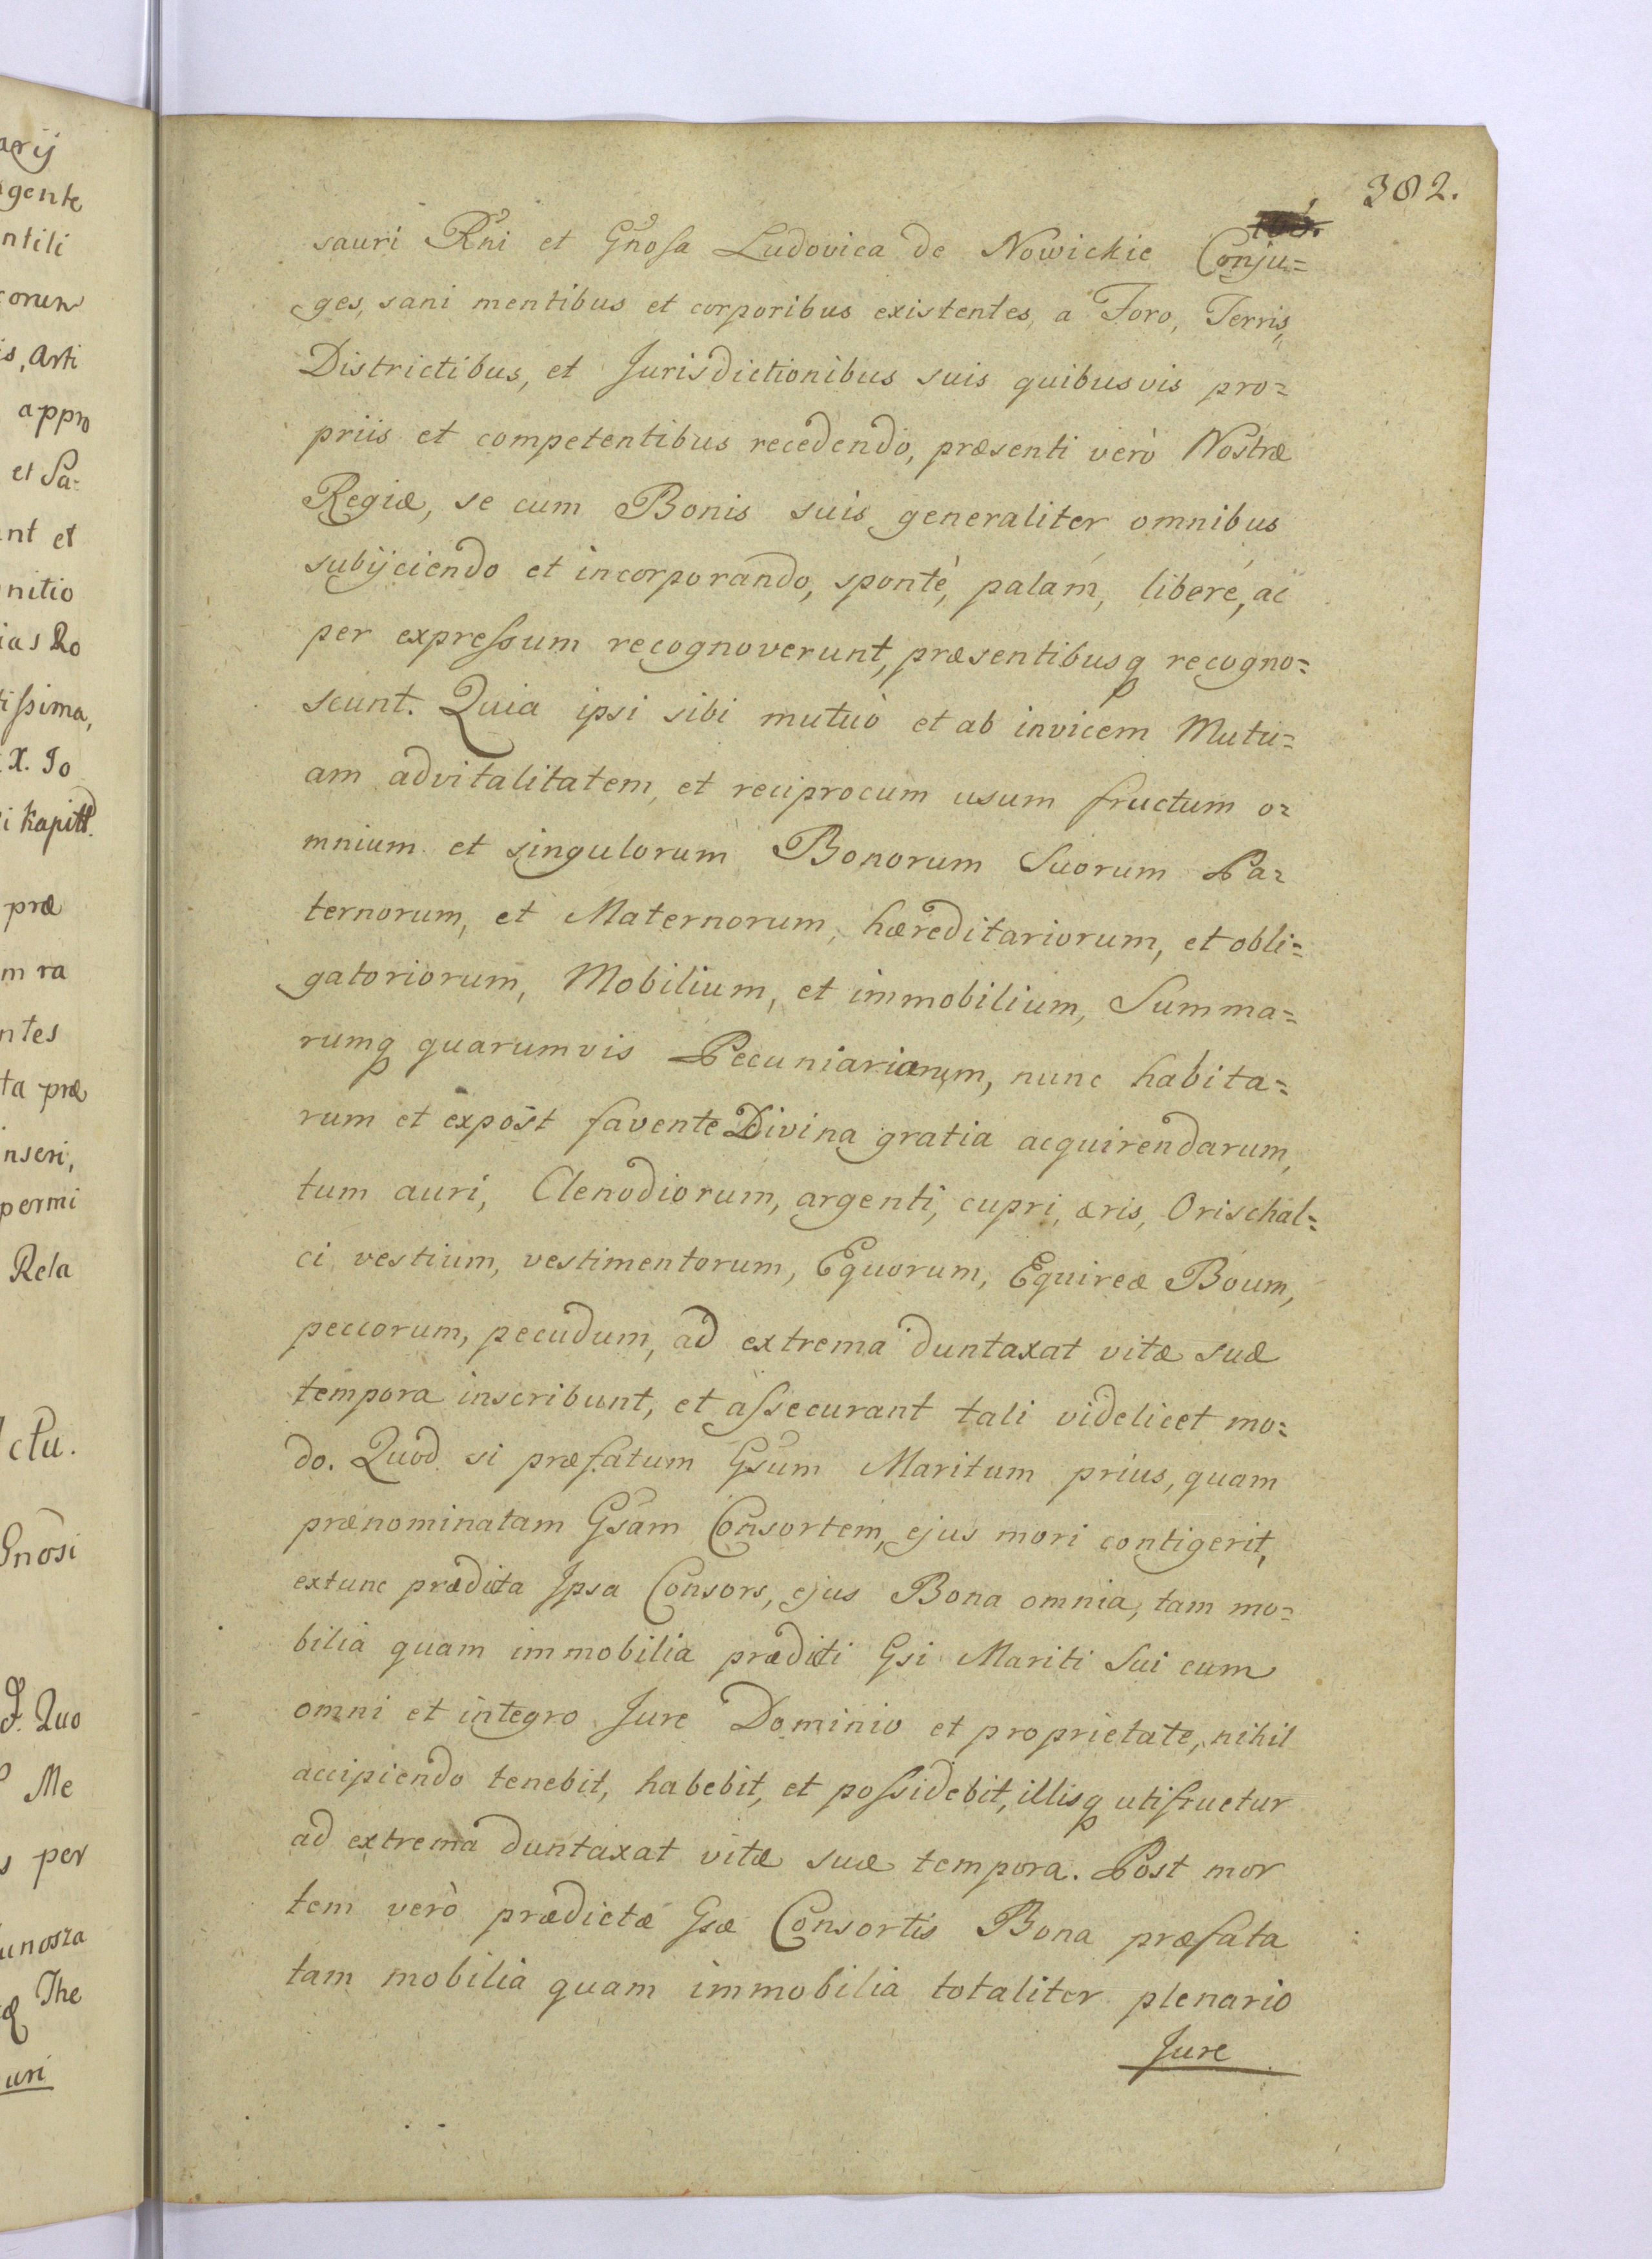 arij
agente
ntili
corum
is, Arti
appro
et Sa=
nt et
nitio
ias Ro
tissima,
X. Jo
i Kapitł.
præ
m ra
ntes
ta præ
inseri,
permi
Rela
Actu.
Gnosi
J. Quo
Me
s per
unosza
The
uri
382.
sauri Rni et Gnosa Ludovica de Nowickie Conju=
ges, sani mentibus et corporibus existentes, a Foro, Terris,
Districtibus, et Jurisdictionibus suis quibusvis pro=
priis et competentibus recedendo, præsenti verò Nostræ
Regiæ, se cum Bonis suis generaliter omnibus
subijciendo et incorporando, spontè, palam, liberè, ac
per expressum recognoverunt, præsentibusq recogno=
scunt. Quia ipsi sibi mutuò et ab invicem Mutu=
am advitalitatem, et reciprocum usum fructum o=
mnium et singulorum Bonorum Suorum Pa=
ternorum, et Maternorum, hæreditariorum, et obli=
gatoriorum, Mobilium, et immobilium, Summa=
rumq quarumvis Pecuniariarum, nunc habita=
rum et expost favente Divina gratia acquirendarum,
tum auri, Clenodiorum, argenti, cupri, æris, Orischal=
ci vestium, vestimentorum, Equorum, Equireæ Boum,
peccorum, pecudum, ad extrema duntaxat vitæ suæ
tempora inscribunt, et assecurant tali videlicet mo=
do. Quod si præfatum Gsum Maritum prius, quam
prænominatam Gsam Consortem, ejus mori contigerit,
extunc prædicta Ipsa Consors, ejus Bona omnia, tam mo=
bilia quam immobilia prædicti Gsi Mariti Sui cum
omni et integro Jure Dominio et proprietate, nihil
accipiendo tenebit, habebit, et possidebit, illisq utifructur
ad extrema duntaxat vitæ suæ tempora. Post mor
tem verò prædictæ Gsæ Consortis Bona præfata
tam mobilia quam immobilia totaliter plenario
Jure